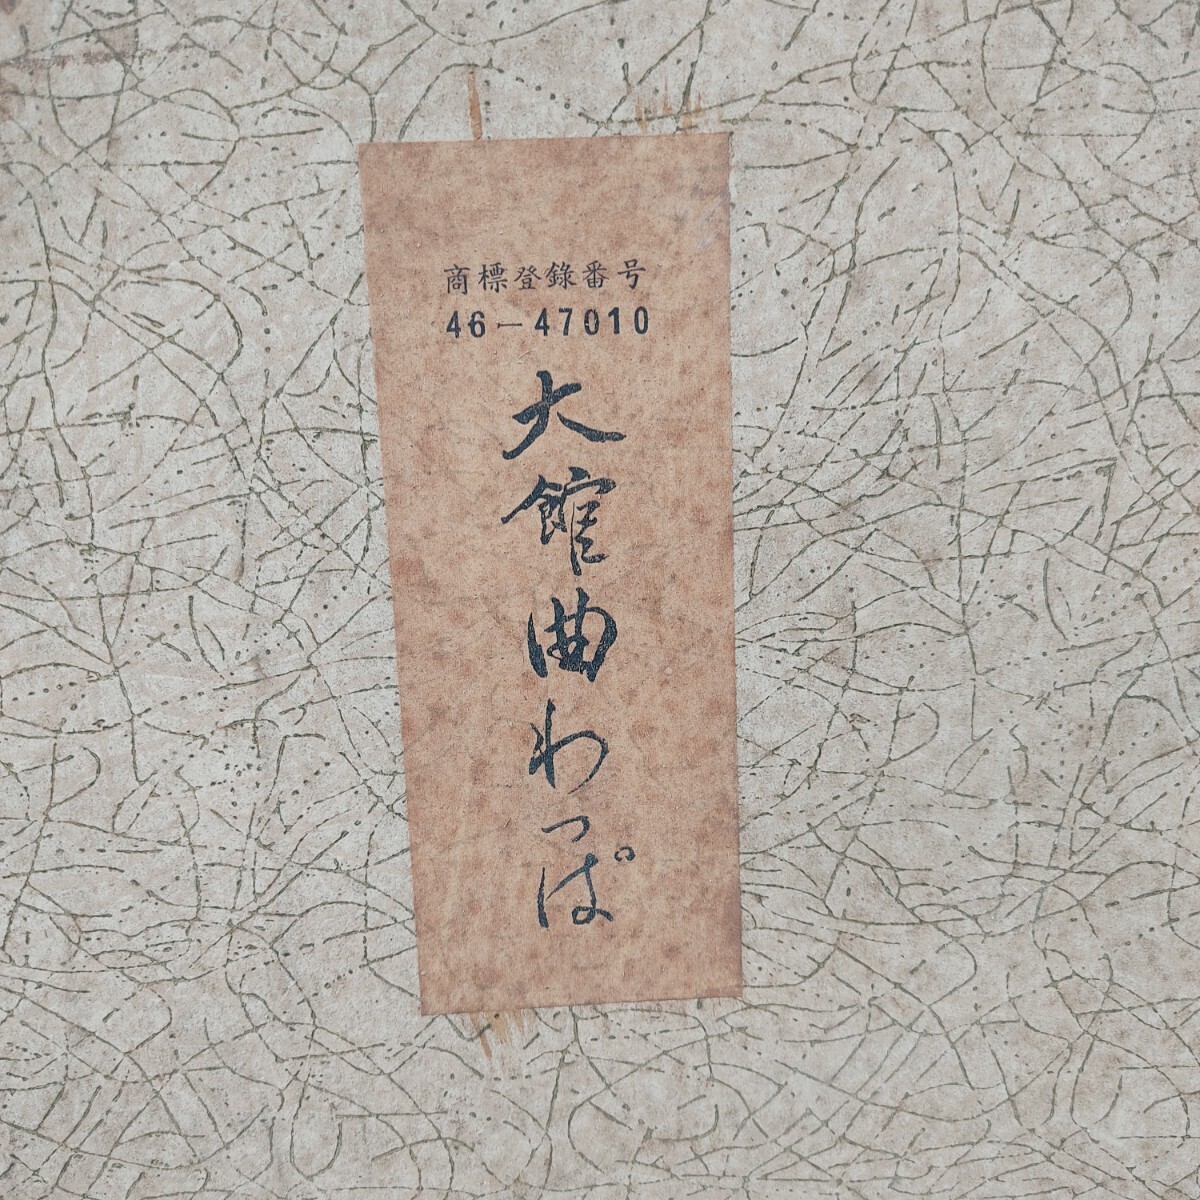 商標登録番号
46-47010
大館曲わっぱ